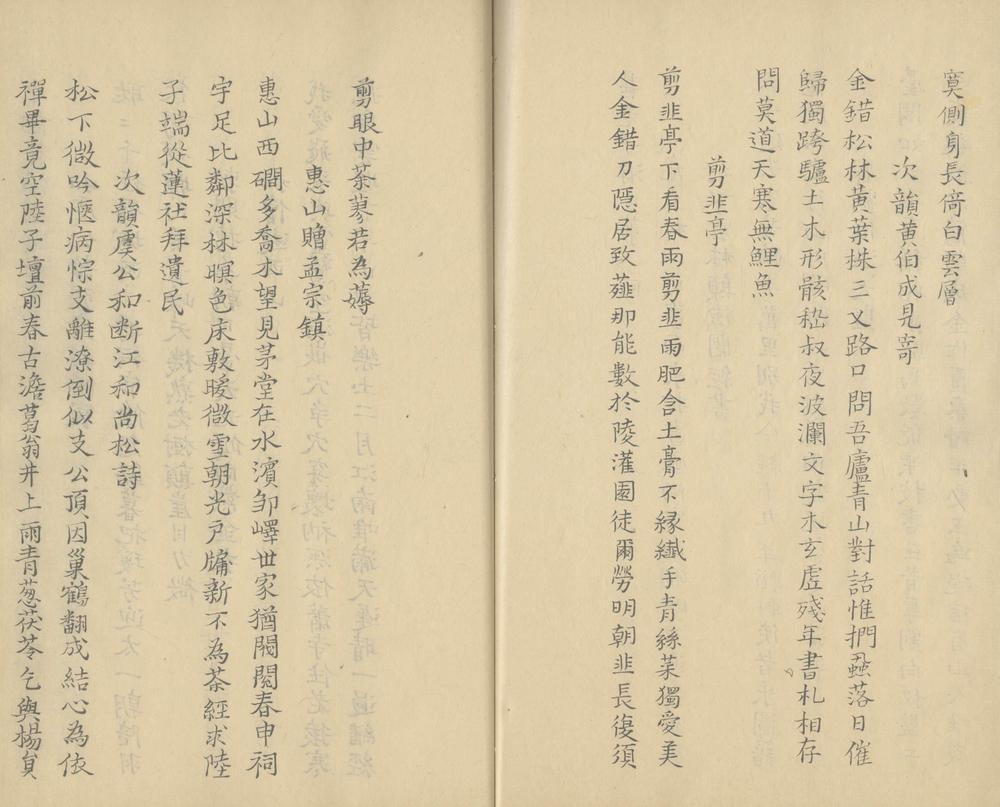 寞側身長倚白雲層
次韻黄伯成見寄
金錯松林黄葉株三乂路口問吾廬青山對話惟捫蝨落日催
歸獨跨驢土木形骸嵇叔夜波瀾文字木玄虛殘年書札相存
問莫道天寒無鯉魚
剪韭亭
剪韭亭下看春雨剪韭雨肥含土膏不縁纎手青絲菜獨愛美
人金錯刀隱居致薤那能數於陵灌園徒爾勞明朝韭長復須
剪眼中荼蓼若為薅
惠山贈孟宗鎮
惠山西磵多喬木望見茅堂在水濱邹嶧世家猶閥閲春申祠
宇足比鄰深林暝色床敷暖微雪朝光戸牖新不為茶經求陸
子端從蓮社拜遺民
次韻虞公和断江和尚松詩
松下微吟惬病悰支離潦倒似支公頂因巢鶴翻成結心為依
禪畢竟空陸子壇前春古澹葛翁井上雨青葱茯苓乞與楊貟